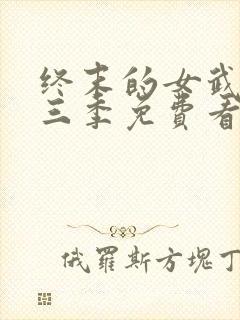 终末的女武
三季免费看
俄羅斯方塊丁